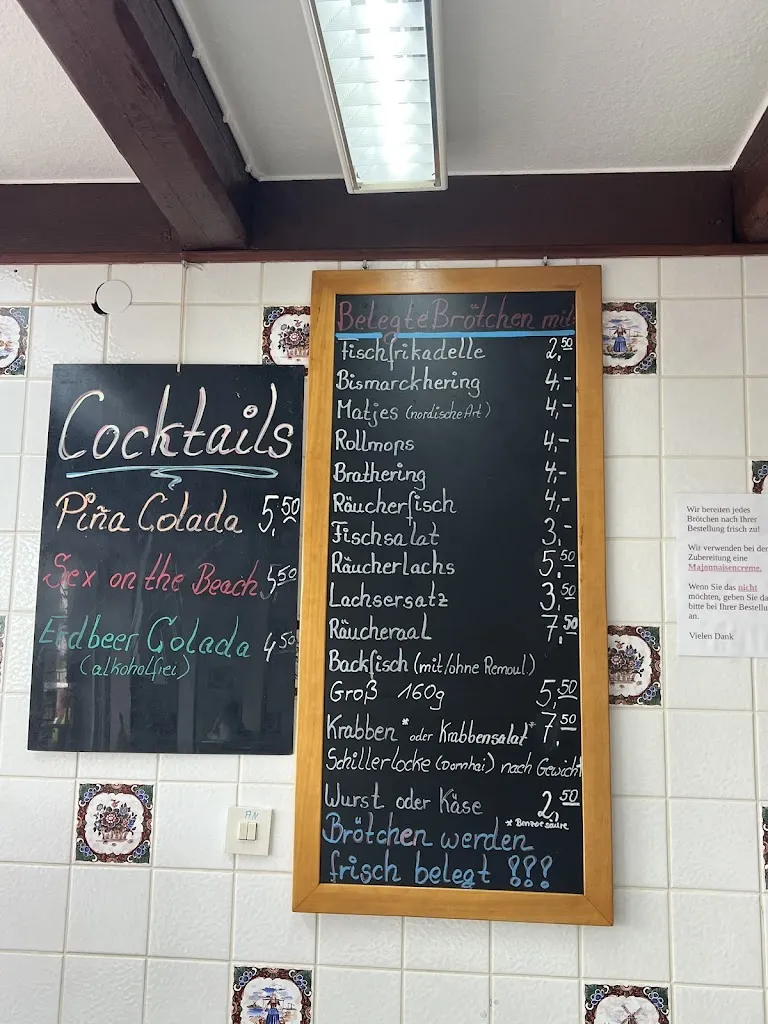 Cocktails
Piña Colada 5,50
Sex on the Beach 5,50
Erdbeer Colada 4,50
(alkoholfrei)
Belegte Brötchen mit
Fischfrikadelle 2,50
Bismarckhering 4,-
Matjes (nordische Art) 4,-
Rollmops 4,-
Brathering 4,-
Räucherfisch 4,-
Fischsalat 3,-
Räucherlachs 5,50
Lachsersatz 3,50
Räucheraal 7,50
Backfisch (mit/ohne Remoul.)
Groß 160g 5,50
Krabben* oder Krabbensalat* 7,50
Schillerlocke (Dornhai) nach Gewicht
Wurst oder Käse 2,50
* Benzoesäure
Brötchen werden
frisch belegt !!!
AN
Wir bereiten jedes
Brötchen nach Ihrer
Bestellung frisch zu!
Wir verwenden bei der
Zubereitung eine
Majonnaisencreme.
Wenn Sie das nicht
möchten, geben Sie da
bitte bei Ihrer Bestellu
an.
Vielen Dank